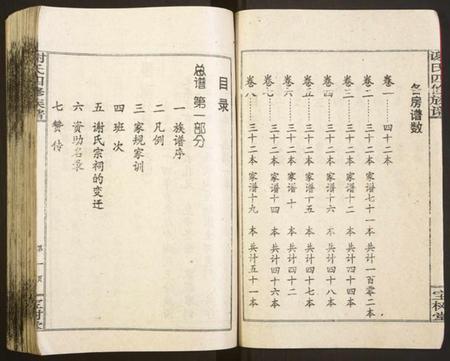 谢氏四修族谱
宝树堂
各房谱数
卷一……四十二本
卷二……三十二本 家谱七十一本 共计一百零二本
卷三……三十二本 家谱十二本 共计四十四本
卷四……三十二本 家谱十六本 共计四十八本
卷五……三十二本 家谱十五本 共计四十七本
卷六……三十二本 家谱十本 共计四十二
卷七……三十二本 家谱十四本 共计四十六本
卷八……三十二本 家谱十九本 共计五十一本
目录
总谱 第一部分
一 族谱序
二 凡例
三 家规家训
四 班次
五 谢氏宗祠的变迁
六 资助名录
七 赞传
谢氏四修族谱
第一页
宝树堂